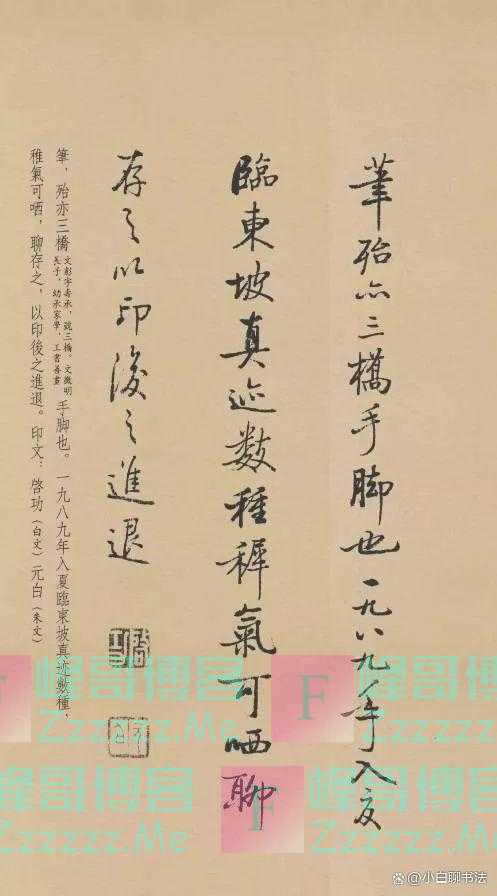 筆殆亦三橋手脚也一九八九年入夏
臨東坡真迹数種稺氣可哂聊
存之以印後之進退
啓功
元白
筆，殆亦三橋文彭字壽承，號三橋。文徵明長子，幼承家學，工書善畫手脚也。一九八九年入夏臨東坡真迹數種，
稚氣可哂，聊存之，以印後之進退。印文：啓功（白文）元白（朱文）
峰哥博客
Zzzzzz.Me
F
峰哥博客
Zzzzzz.Me
峰哥博客
Zzzzzz.Me
F
峰哥博客
Zzzzzz.Me
@小白聊书法